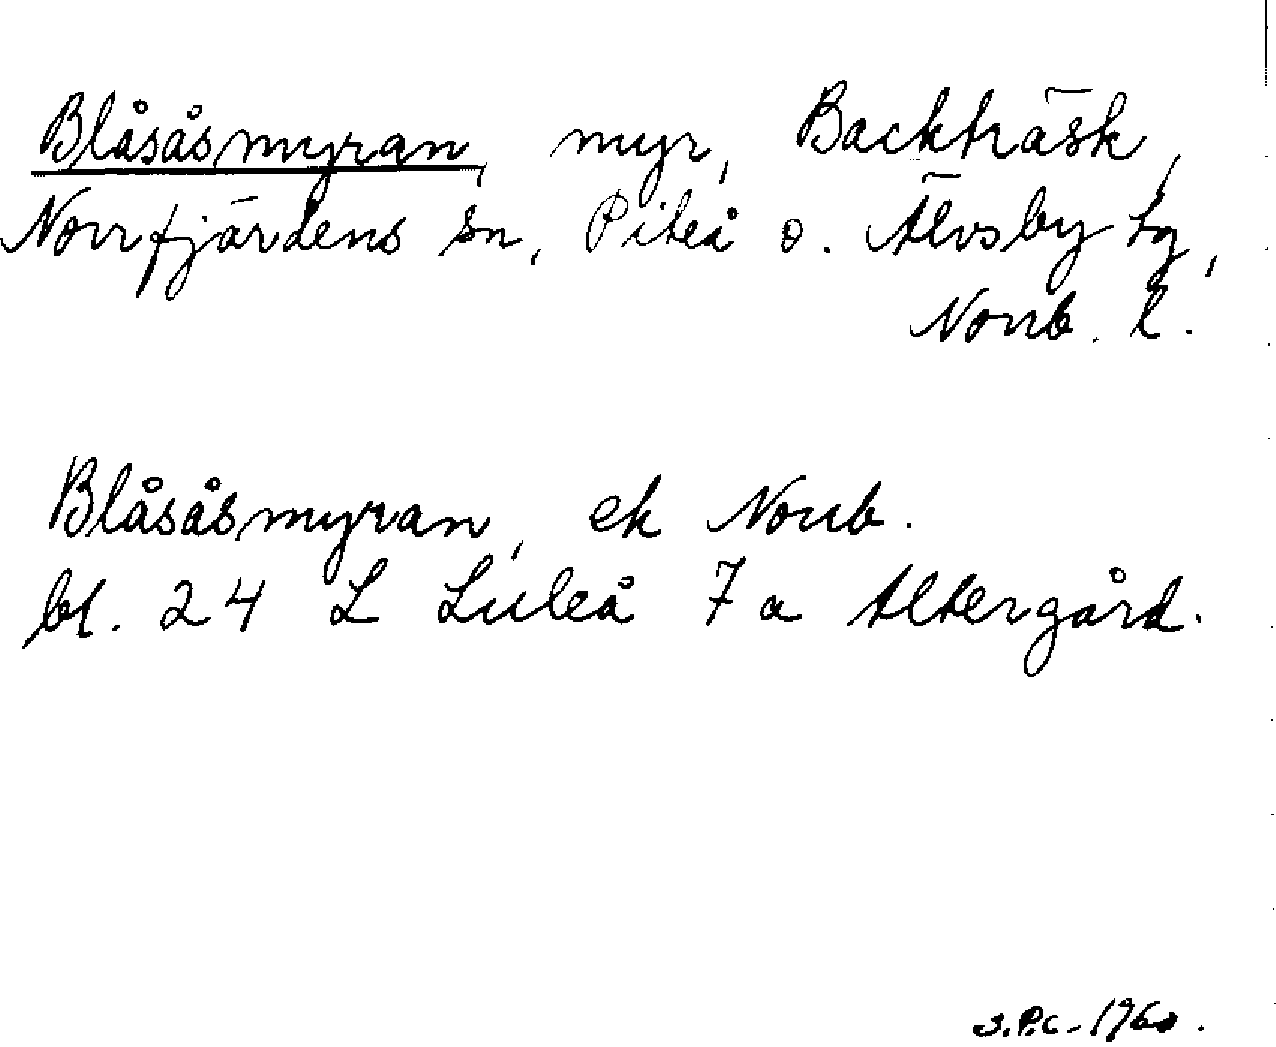 Blåsåsmyran, myr, Backträsk,
Norrfjärdens sn, Piteå o. Älvsby tg,
Norrb. l.
Blåsåsmyran, ek Norrb.
bl. 24 L Luleå 7a Altergård.
S.P.C. 1960.